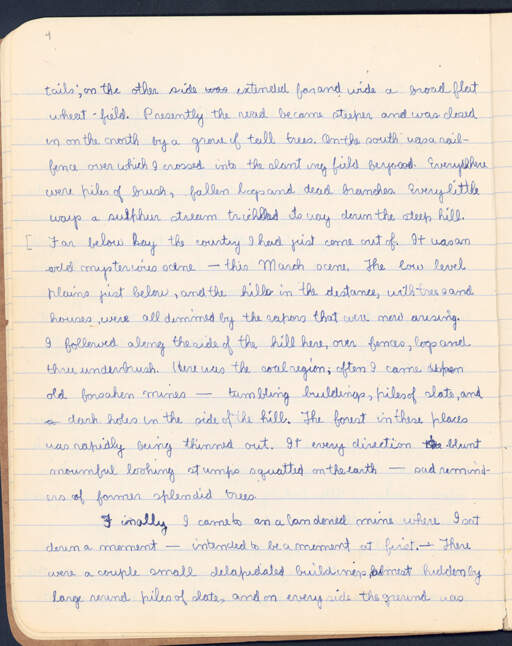 4
tails; on the other side was extended far and wide a broad flat
wheat-field. Presently the road became steeper and was closed
in on the north by a grove of tall trees. On the south was a rail-
fence over which I crossed into the slanting field beyond. Everywhere
were piles of brush, fallen logs and dead branches. Every little
ways a sulphur stream trickled its way down the steep hill.
[ Far below lay the country I had just come out of. It was an
odd mysterious scene — this March scene. The low level
plains just below, and the hills in the distance, with trees and
houses, were all dimmed by the vapors that were now arising.
I followed along the side of the hill here, over fences, logs and
thru underbrush. Here was the coal region; often I came upon
old forsaken mines — tumbling buildings, piles of slate, and
dark holes in the side of the hill. The forest in these places
was rapidly being thinned out. It every direction blunt
mournful looking stumps squatted on the earth — sad remind-
ers of former splendid trees.
Finally I came to an abandoned mine where I sat
down a moment — intended to be a moment at first. — There
were a couple small delapidated buildings, almost hidden by
large round piles of slate, and on every side the ground was